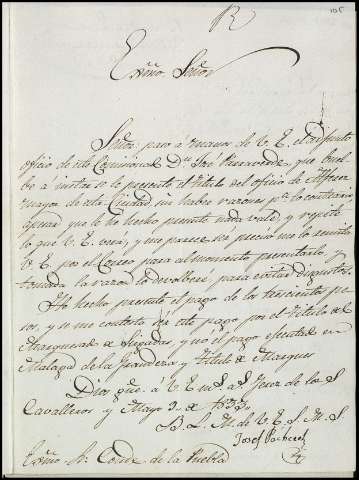 R
105
Exmo Señor
Señor paso á manos de V. E. el adjunto
oficio de este Comisionado Dn José que buel-
be á instar se le presente el titulo del oficio de Alferez
mayor de esta Ciudad sin haber razones pa lo contrario,
apesar que le he hecho presente nada vale, y repite
lo que V. E. verá; y me parece ser preciso me lo remita
V. E. por el Correo para al momento presentarlo, y
tomada la razon lo devolberé para evitar disgustos.
He hecho presente el pago de los trescientos pe-
sos, y se me contesta ser este pago por el titulo del
Marquesado de y no el pago efectuado en
Malaga de la y titulo de Marques
Dios gue. á V. E. ms. as. Jerez de los
Cavalleros y Mayo 3 de
B. L. M. de V. E. S. M. S.
Josef Pacheco
Exmo Sr. Conde de la Puebla